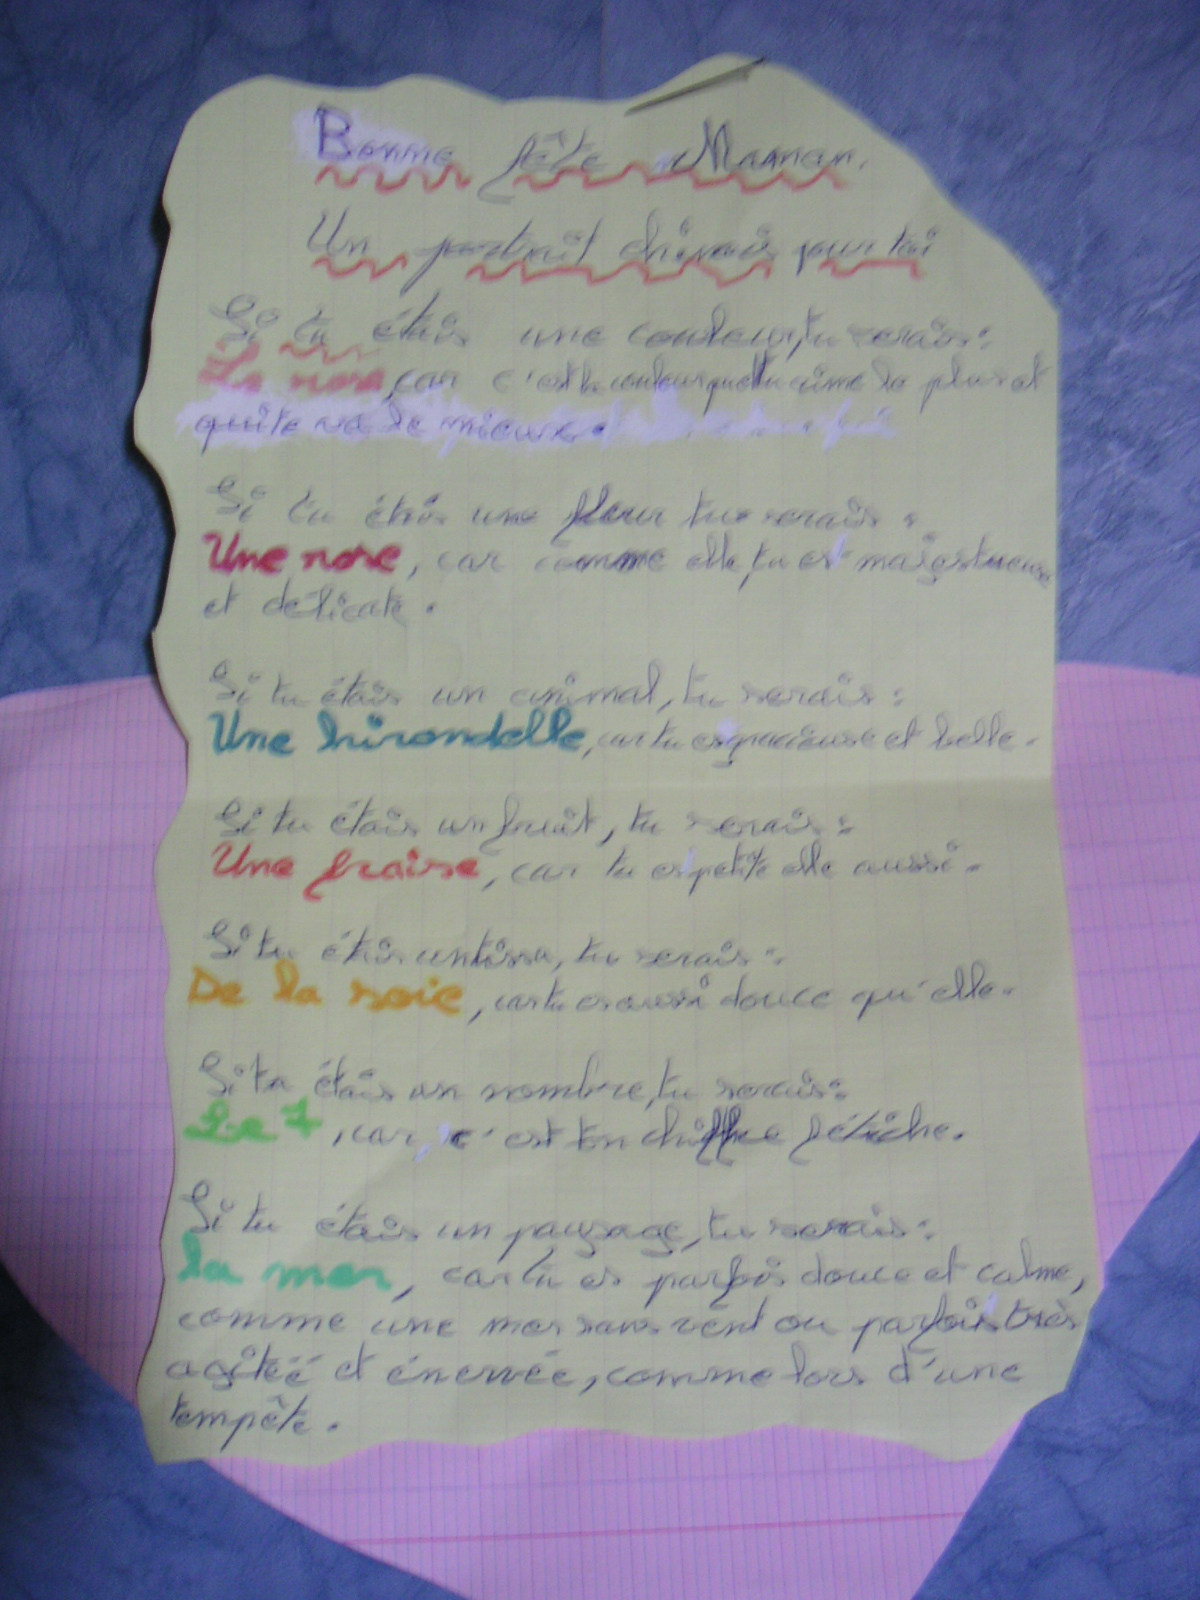 Bonne fête Maman.
Un portrait chinois pour toi
Si tu étais une couleur, tu serais :
Le rose, car c'est la couleur que tu aime le plus et
qui te va le mieux.
Si tu étais une fleur tu serais :
Une rose, car comme elle, tu es majestueuse
et délicate.
Si tu étais un animal, tu serais :
Une hirondelle, car tu es gracieuse et belle.
Si tu étais un fruit, tu serais :
Une fraise, car tu es petite elle aussi.
Si tu étais un tissu, tu serais :
De la soie, car tu es aussi douce qu'elle.
Si tu étais un nombre, tu serais :
Le 7, car c'est ton chiffre fétiche.
Si tu étais un paysage, tu serais :
la mer, car tu es parfois douce et calme,
comme une mer sans vent ou parfois très
agitéé et énervée, comme lors d'une
tempête.